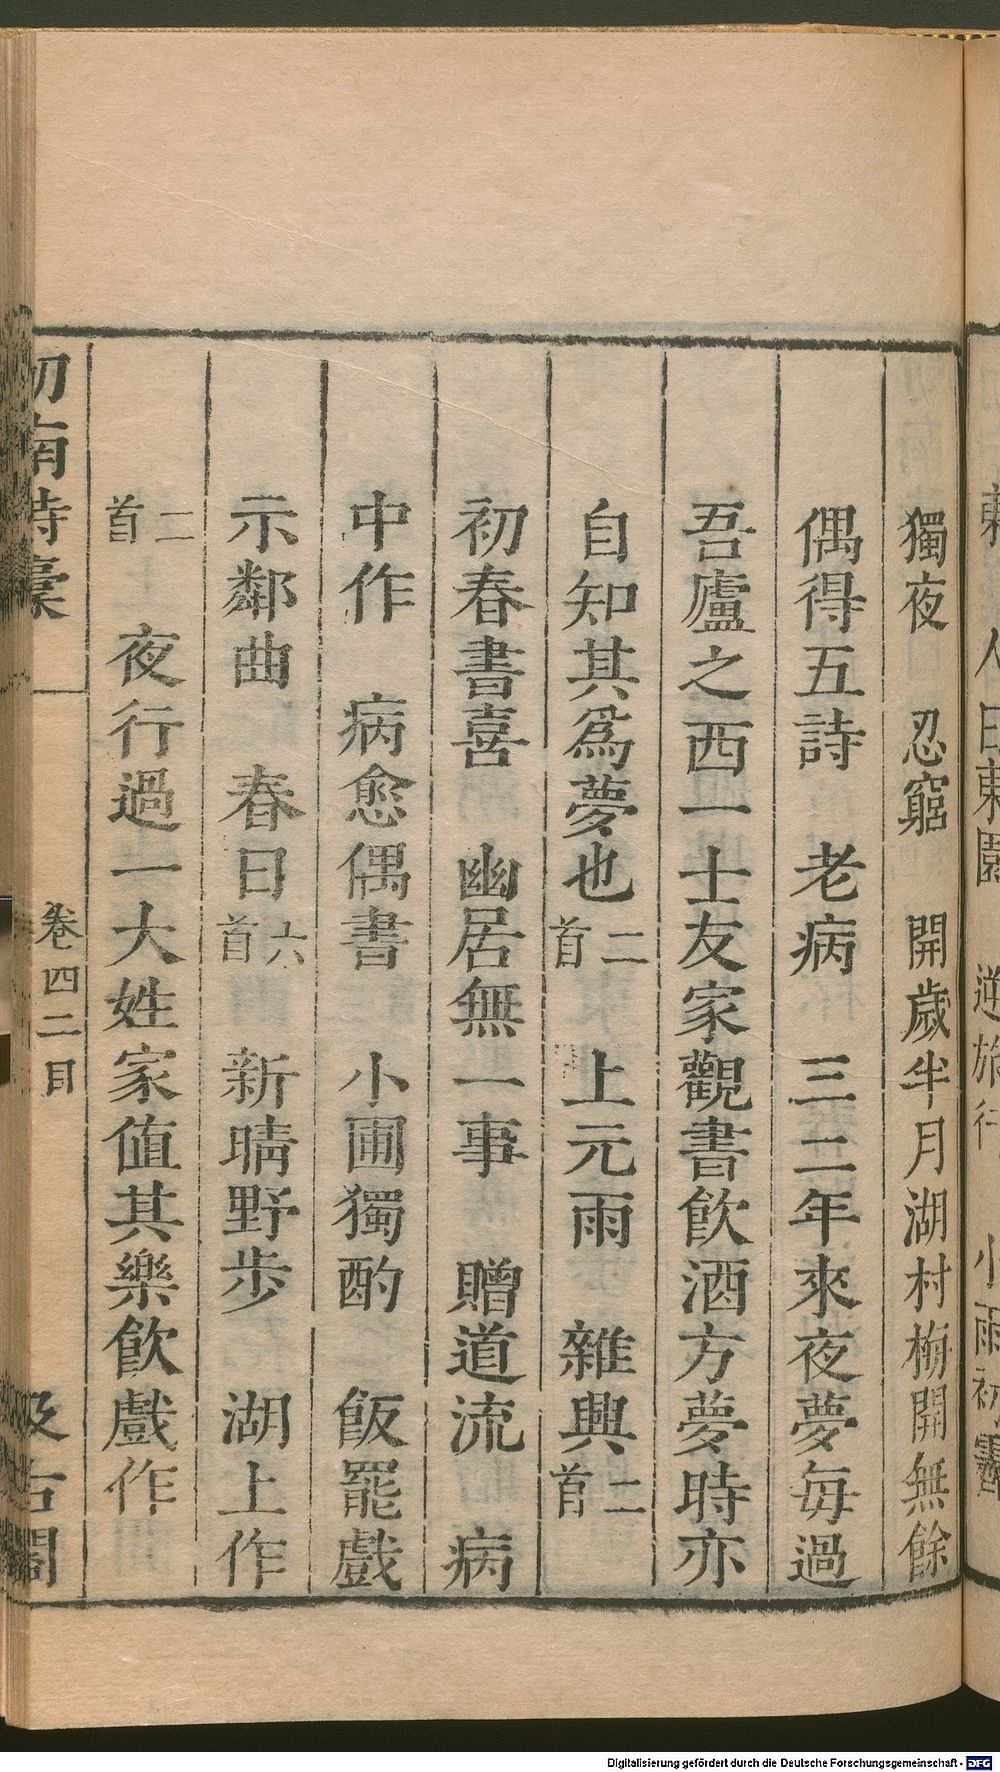 獨夜　忍窮　開歲半月湖村梅開無餘
偶得五詩　老病　三二年來夜夢每過
吾廬之西一士友家觀書飲酒方夢時亦
自知其爲夢也二首　上元雨　雜興二首
初春書喜　幽居無一事　贈道流　病
中作　病愈偶書　小圃獨酌　飯罷戲
示鄰曲　春日六首　新晴野步　湖上作
二首　夜行過一大姓家值其樂飲戲作
劎南詩稾　卷四二目　汲古閣
人日東園　逆旅行　小雨初霽
Digitalisierung gefördert durch die Deutsche Forschungsgemeinschaft - DFG